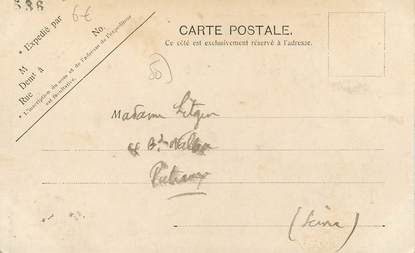 588
6-€
* Expédié par
M
Demt à
Rue No.
* L'inscription du nom et de l'adresse de l'expéditeur
est facultative.
CARTE POSTALE.
Ce côté est exclusivement réservé à l'adresse.
Madame
(Seine)